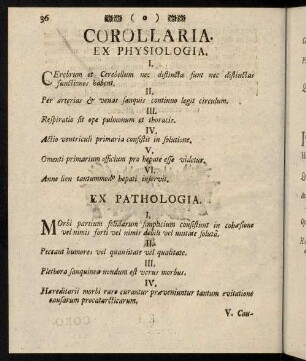 36 ( o )
COROLLARIA.
EX PHYSIOLOGIA.
I.
CErebrum et Cerebellum nec distincta sunt nec distinctas
functiones habent.
II.
Per arterias & venas sanguis continuo legit circulum.
III.
Respiratio fit ope pulmonum et thoracis.
IV.
Actio ventriculi primaria consistit in solutione.
V.
Omenti primarium officium pro hepate esse videtur.
VI.
Anne lien tantummodo hepati inservit.
EX PATHOLOGIA.
I.
MOrbi partium solidarum simplicium consistunt in cohæsione
vel nimis forti vel nimis debili vel mutate solutâ.
II.
Peccant humores vel quantitate vel qualitate.
III.
Plethora sanguinea nondum est verus morbus.
IV.
Hæreditarii morbi raro curantur præveniuntur tantum evitatione
causarum procatarcticarum.
V. Cau-